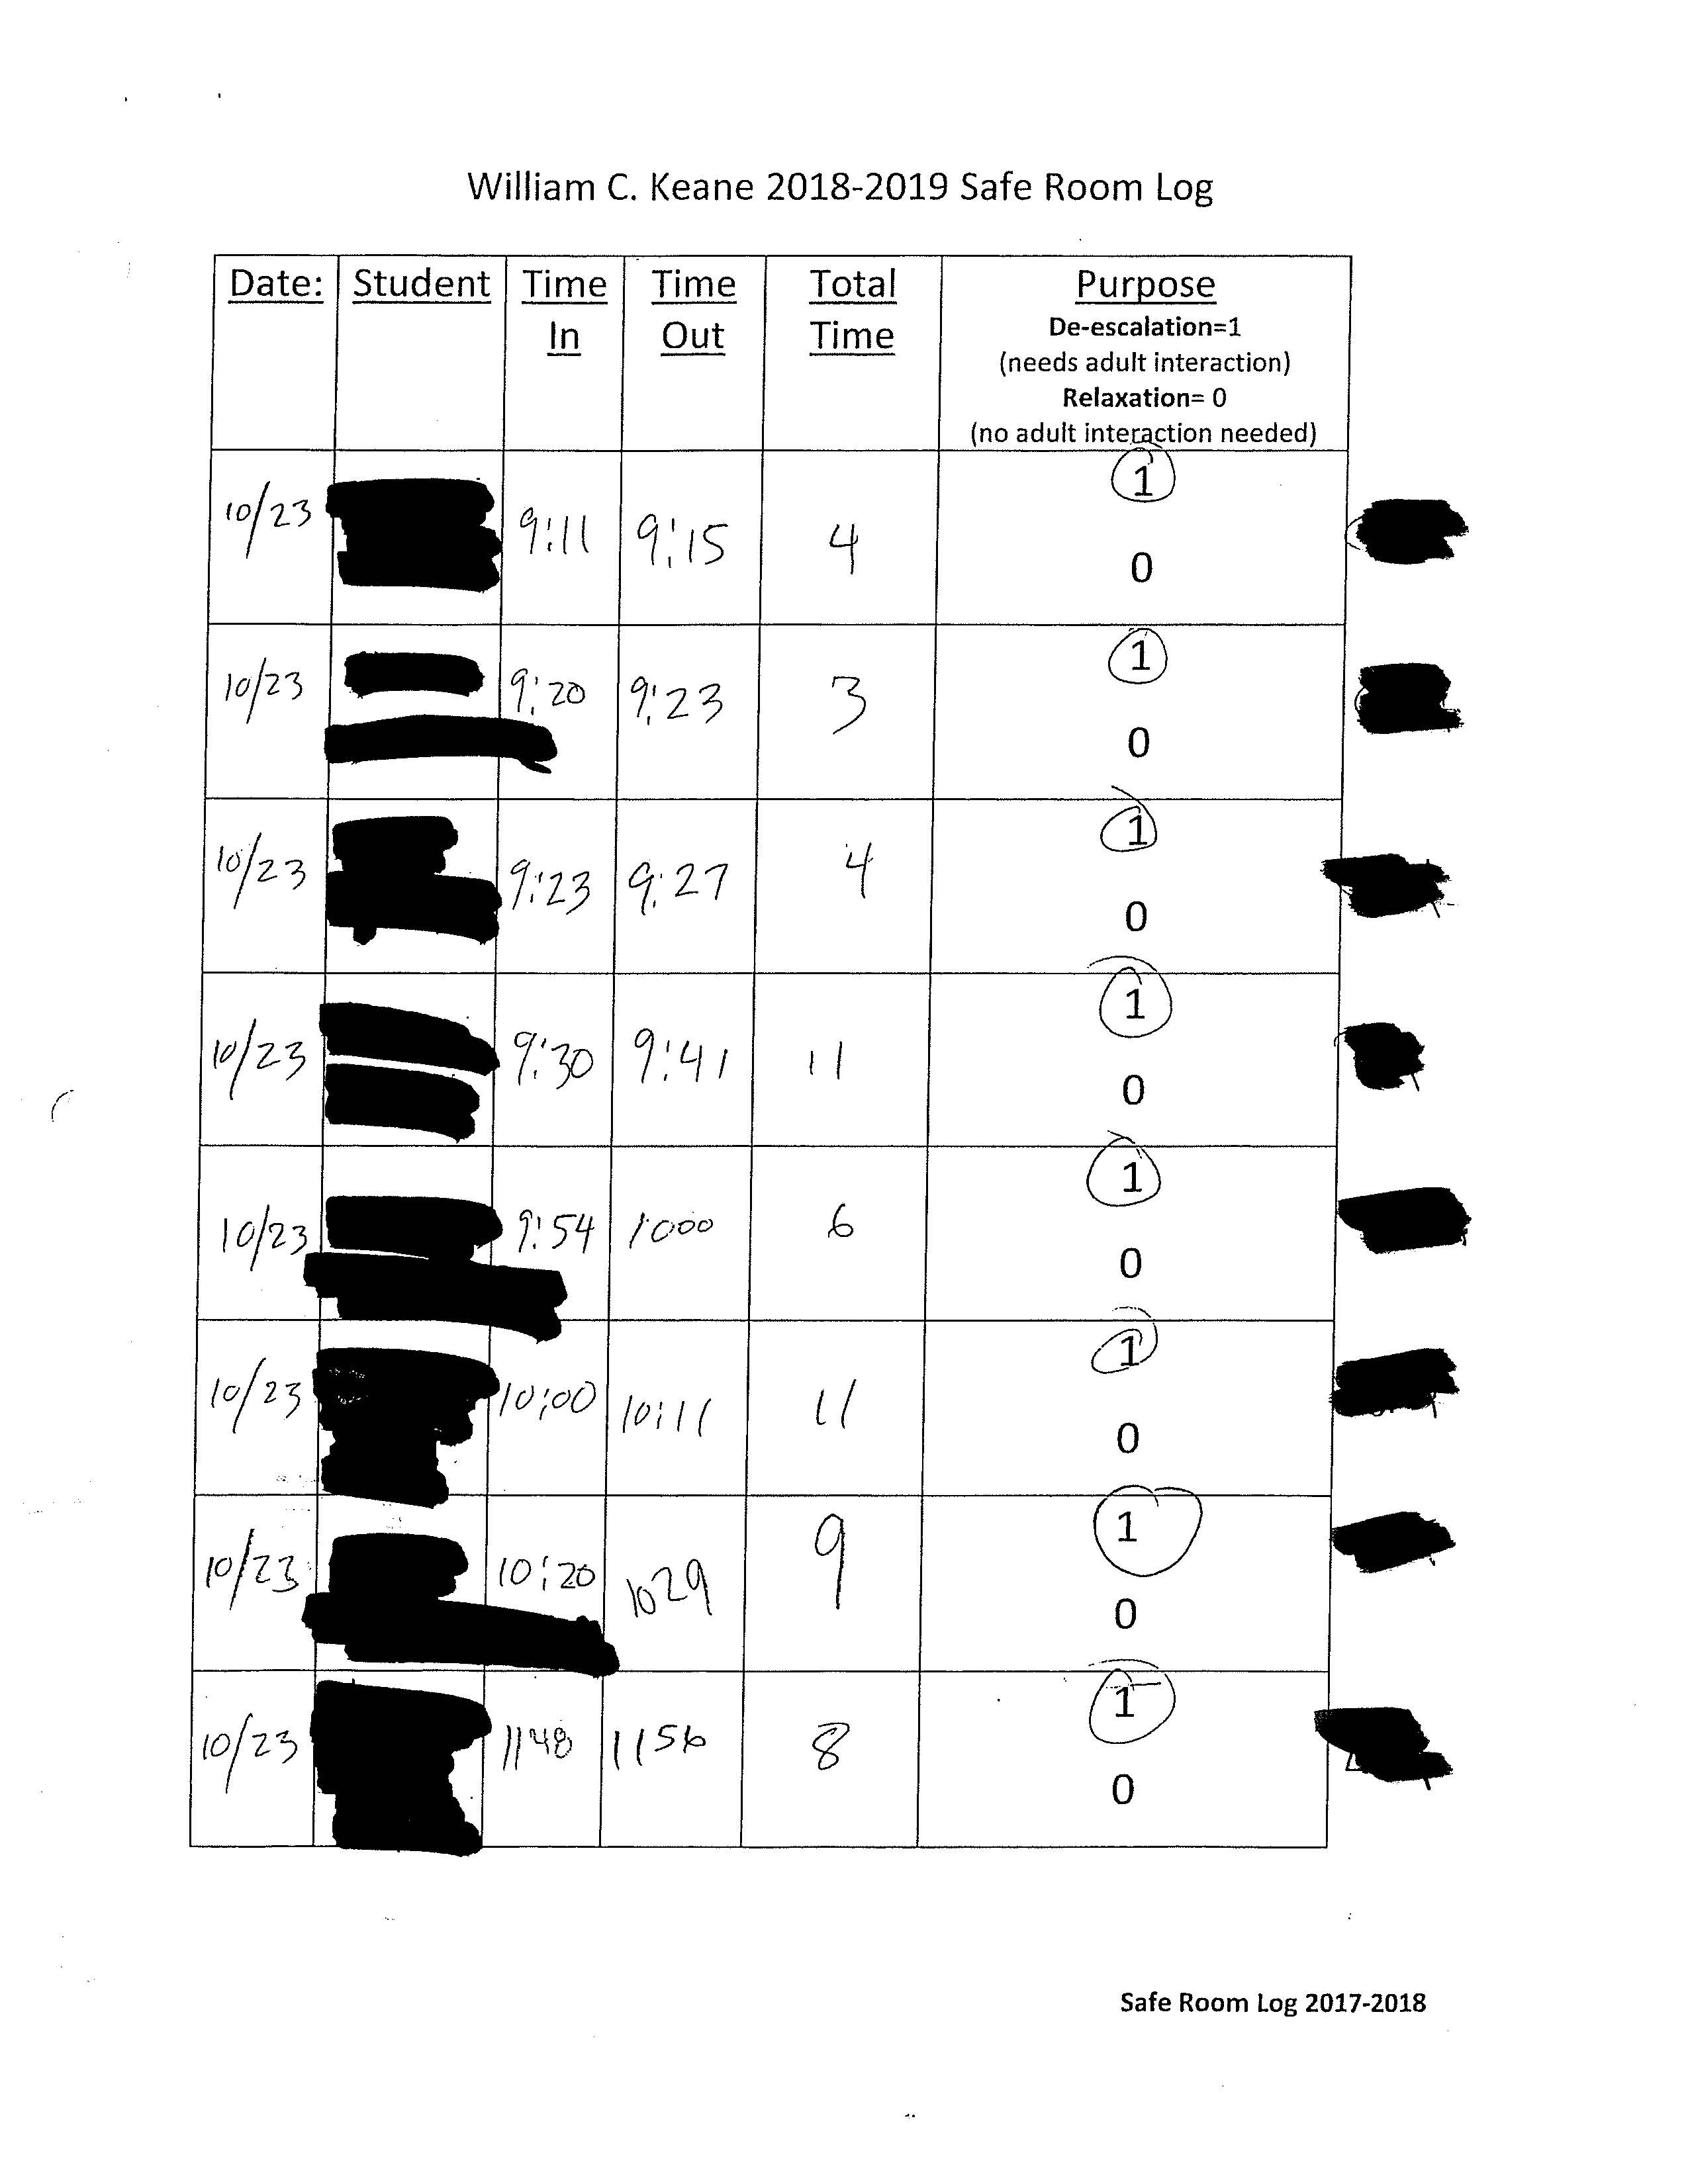 William C. Keane 2018-2019 Safe Room Log
Date: Student Time In Time Out Total Time Purpose
De-escalation=1
(needs adult interaction)
Relaxation= 0
(no adult interaction needed)
10/23 9:11 9:15 4 1
0
10/23 9:20 9:23 3 1
0
10/23 9:23 9:27 4 1
0
10/23 9:30 9:41 11 1
0
10/23 9:54 1000 6 1
0
10/23 10:00 10:11 11 1
0
10/23 10:20 1029 9 1
0
10/23 1148 1156 8 1
0
Safe Room Log 2017-2018